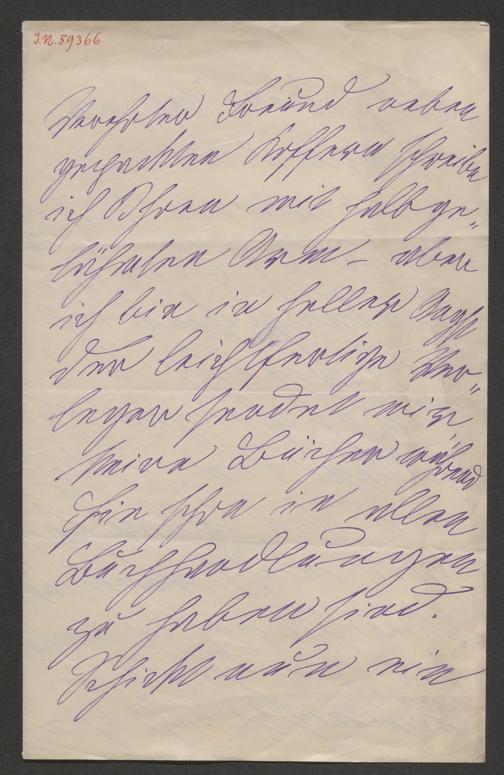 I.N. 59366
Verehrter Freund neben
gepackten Koffern schreibe
ich Ihnen mit halbge„
lähmten Arm – aber
ich bin in heller Angst
der leichtfertige Ver„
leger sendet mir
keine Bücher während
Sie schon in allen
Buchhandlungen
zu haben sind.
Schickt nun ein